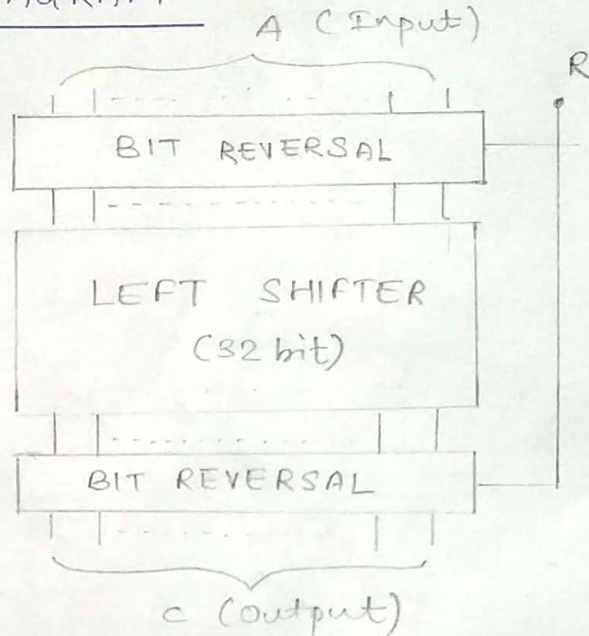 A (Input)
R
BIT REVERSAL
LEFT SHIFTER
(32 bit)
BIT REVERSAL
C (Output)